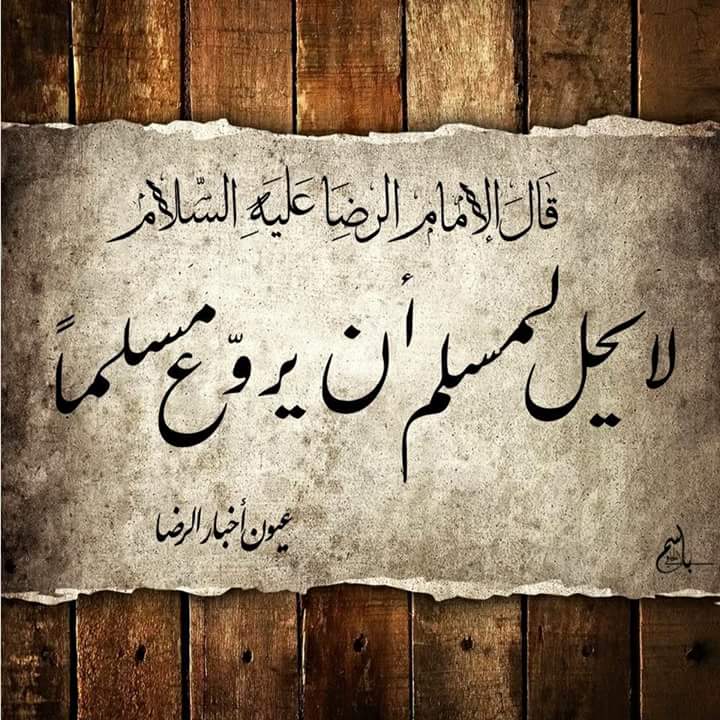 قَالَ الإمَام الرِضَا عَليَهِ السَّلام
لا يحل لمسلم أن يروّع مسلماً
عيون أخبار الرضا
باسم